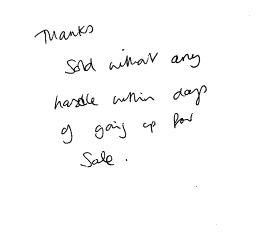 Thanks
Sold without any
hassle within days
of going up for
Sale.